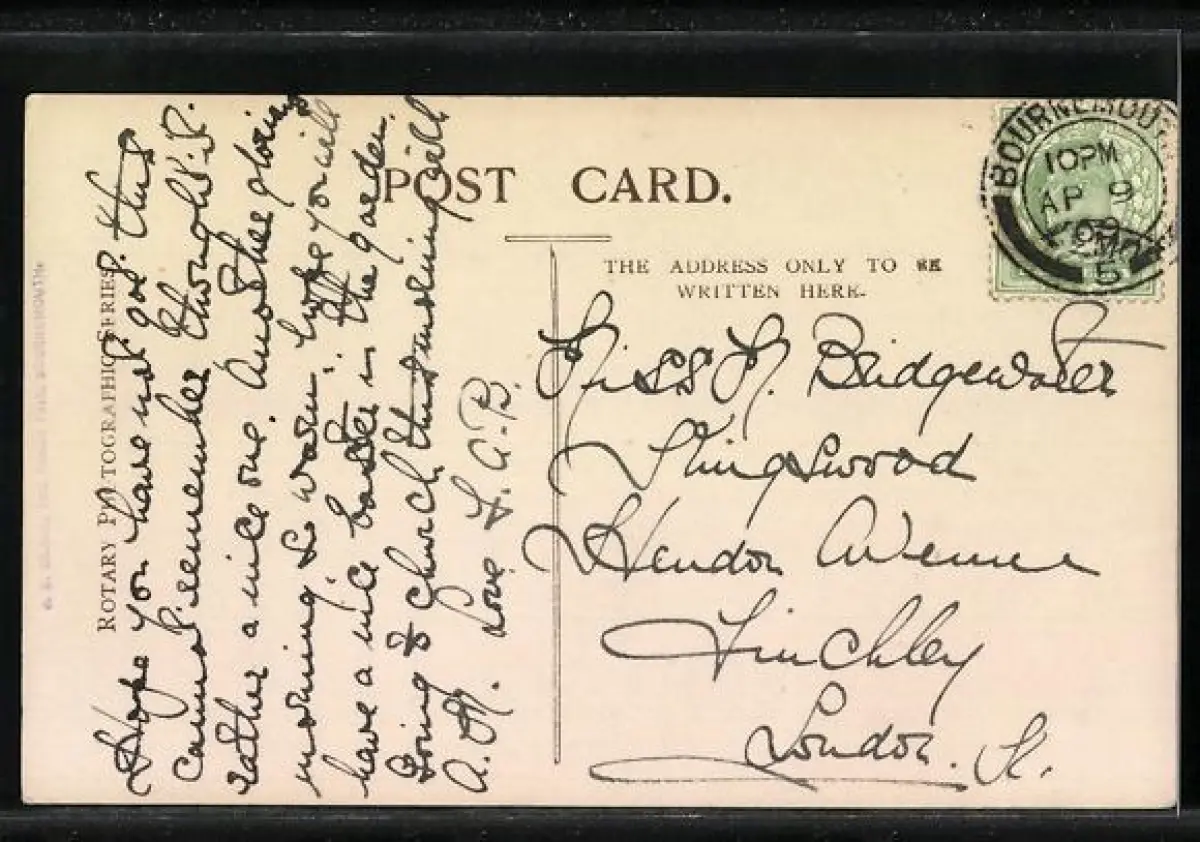 POST CARD.
THE ADDRESS ONLY TO BE
WRITTEN HERE.
BOURNEMOU
10 PM
AP 9
09
5
Miss M. Bridgewater
Kingswood
Hendon Avenue
Finchley
London. N.
ROTARY PHOTOGRAPHIC SERIES
Hope you have not got this
cannot remember thought
rather a nice one. Another glorious
morning so warm. hope you will
have a nice Easter in the garden.
Going to church this morning with
A. M. Love